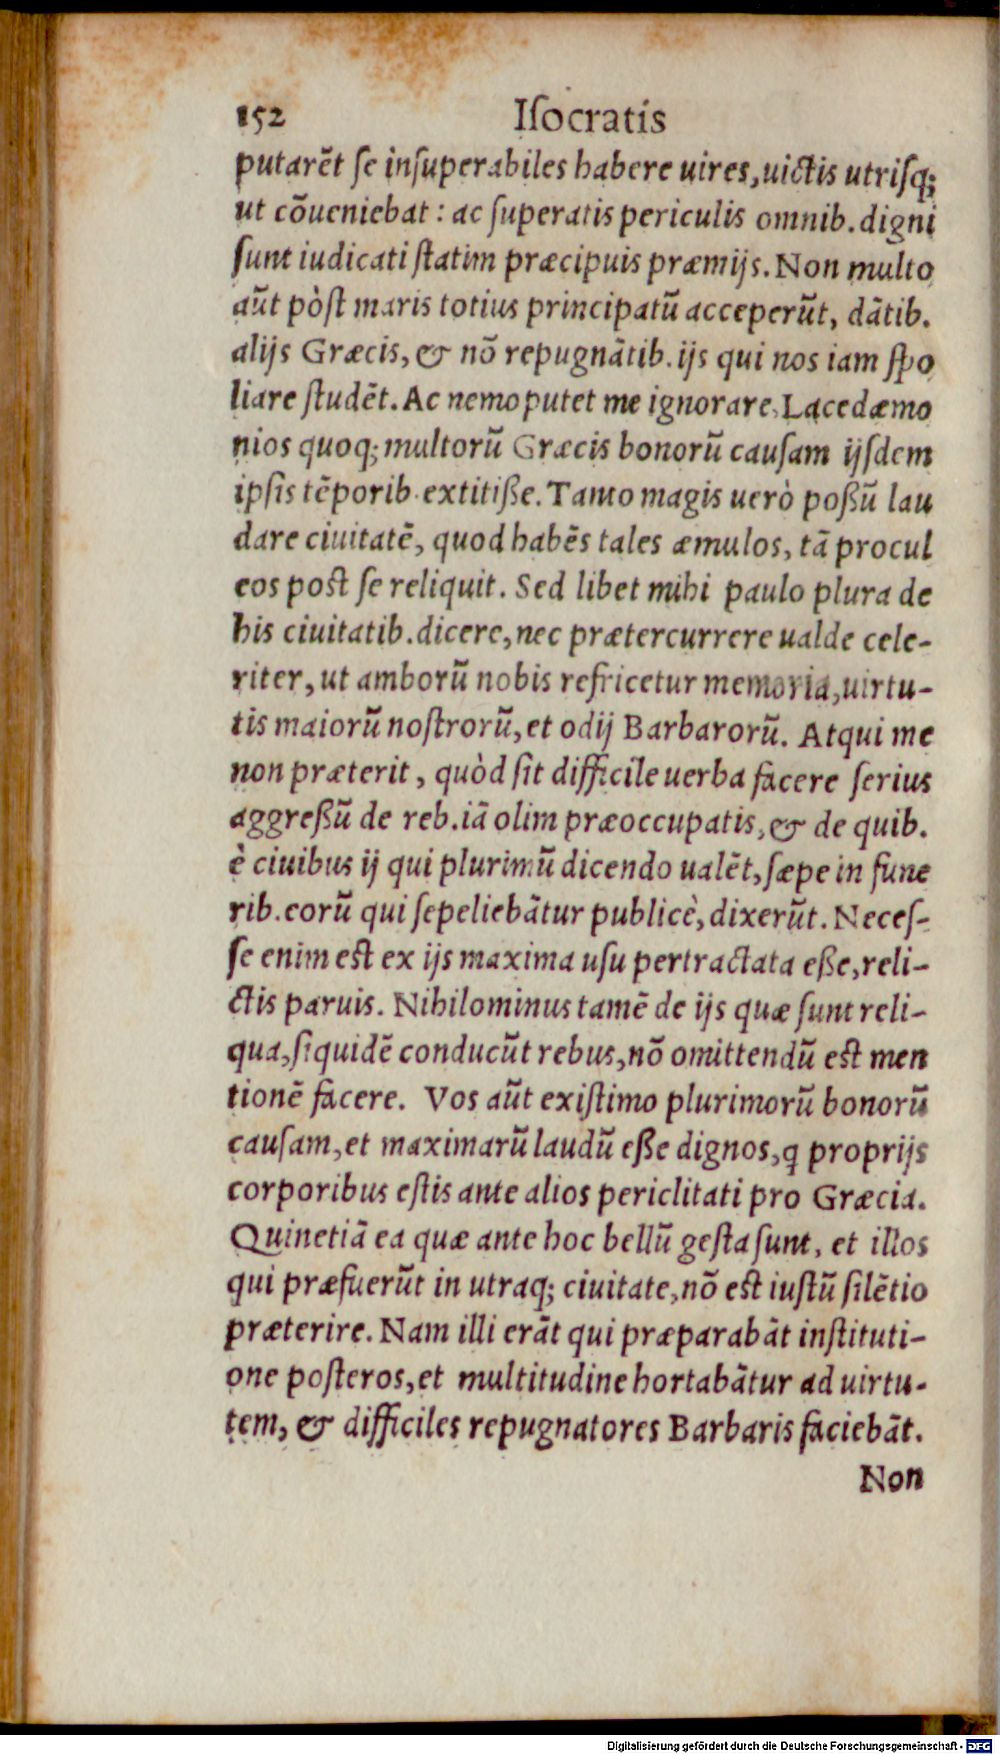 152 Iſocratis
putarẽt ſe inſuperabiles habere uires, uictis utriſq;
ut cõueniebat: ac ſuperatis periculis omnib. digni
ſunt iudicati ſtatim præcipuis præmijs. Non multo
aũt pòſt maris totius principatũ acceperũt, dãtib.
alijs Græcis, & nõ repugnãtib. ijs qui nos iam ſpo
liare ſtudẽt. Ac nemo putet me ignorare, Lacedæmo
nios quoq; multorũ Græcis bonorũ cauſam ijſdem
ipſis tẽporib. extitiße. Tanto magis uerò poßũ lau
dare ciuitatẽ, quod habẽs tales æmulos, tã procul
eos post ſe reliquit. Sed libet mihi paulo plura de
his ciuitatib. dicere, nec prætercurrere ualde cele-
riter, ut amborũ nobis refricetur memoria, uirtu-
tis maiorũ noſtrorũ, et odij Barbarorũ. Atqui me
non præterit, quòd ſit difficile uerba facere ſerius
aggreßũ de reb. iã olim præoccupatis, & de quib.
è ciuibus ij qui plurimũ dicendo ualẽt, ſæpe in fune
rib. eorũ qui ſepeliebãtur publicè, dixerũt. Neceſ-
ſe enim est ex ijs maxima uſu pertractata eße, reli-
ctis paruis. Nihilominus tamẽ de ijs quæ ſunt reli-
qua, ſiquidẽ conducũt rebus, nõ omittendũ est men
tionẽ facere. Vos aũt exiſtimo plurimorũ bonorũ
cauſam, et maximarũ laudũ eße dignos, ꝗ proprijs
corporibus eſtis ante alios periclitati pro Græcia.
Quinetiã ea quæ ante hoc bellũ geſta ſunt, et illos
qui præfuerũt in utraq; ciuitate, nõ est iuſtũ ſilẽtio
præterire. Nam illi erãt qui præparabãt inſtituti-
one poſteros, et multitudinẽ hortabãtur ad uirtu-
tem, & difficiles repugnatores Barbaris faciebãt.
Non
Digitalisierung gefördert durch die Deutsche Forschungsgemeinschaft - DFG